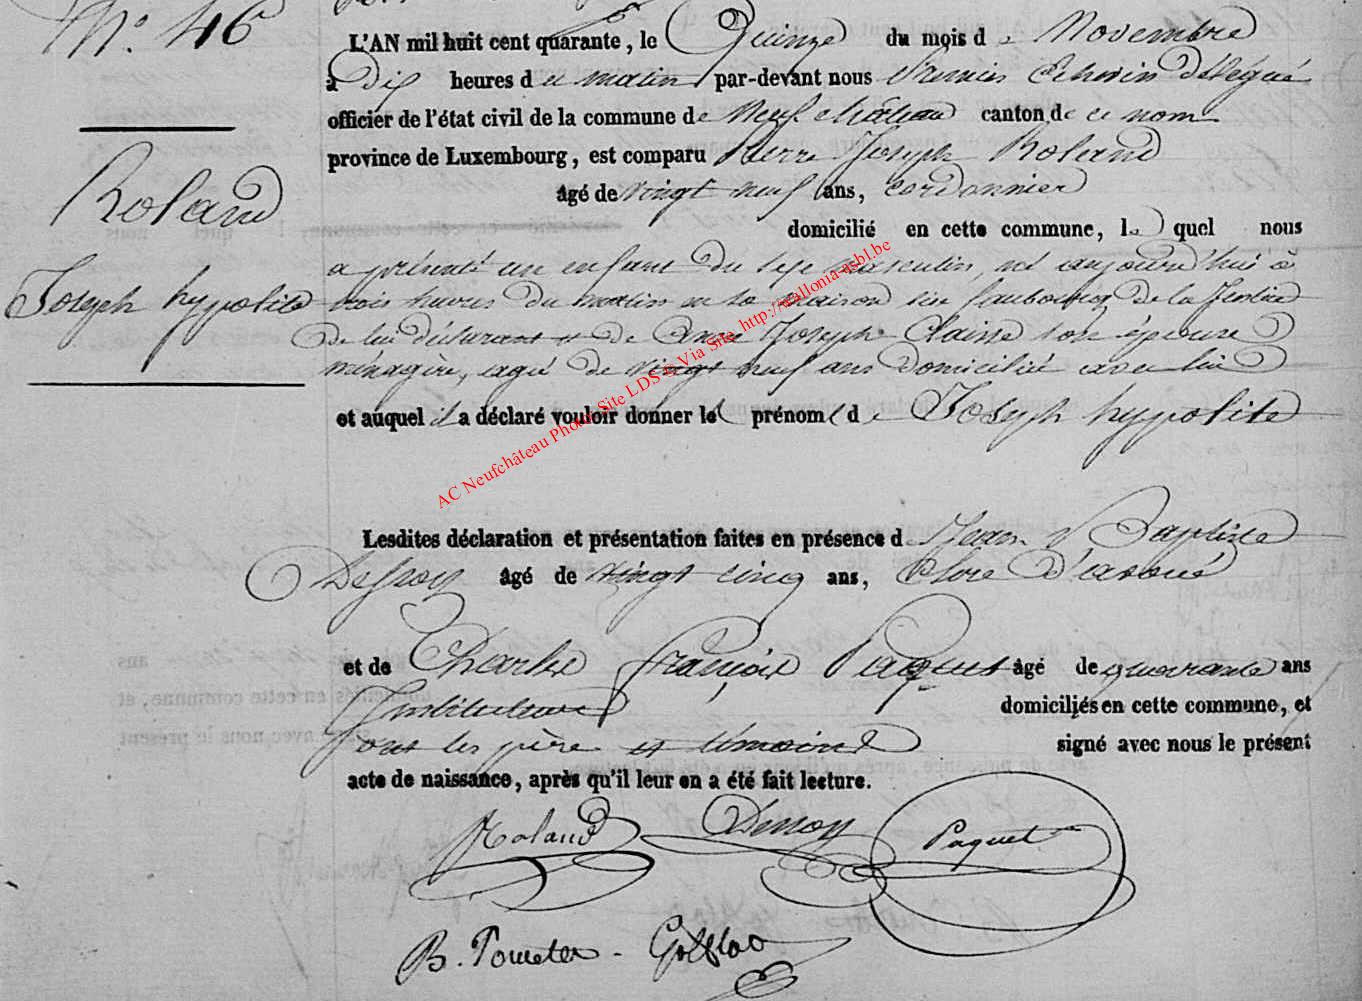 N° 46
Roland
Joseph hypolite
L'AN mil huit cent quarante, le Quinze du mois de Novembre
à Dix heures du matin par-devant nous Premier Echevin Délégué
officier de l'état civil de la commune de Neufchâteau canton de ce nom
province de Luxembourg, est comparu Pierre Joseph Roland
âgé de vingt neuf ans, cordonnier
domicilié en cette commune, le quel nous
a présenté un enfant du sexe masculin, né aujourd'hui à
trois heures du matin en sa maison sise faubourg de la Justice
de lui déclarant et de Anne Joseph Claisse son épouse
ménagère, agé de vingt neuf ans domiciliée avec lui
et auquel il a déclaré vouloir donner le prénom de Joseph hypolite
Lesdites déclaration et présentation faites en présence de Jean Baptiste
âgé de vingt cinq ans, Clerc d'avoué
et de Charles François Paquet âgé de quarante ans
Instituteur domiciliés en cette commune, et
ont les père et témoins signé avec nous le présent
acte de naissance, après qu'il leur en a été fait lecture.
Roland
Paquet
AC Neufchâteau Photo Site LDS © Via Site http://wallonia-asbl.be